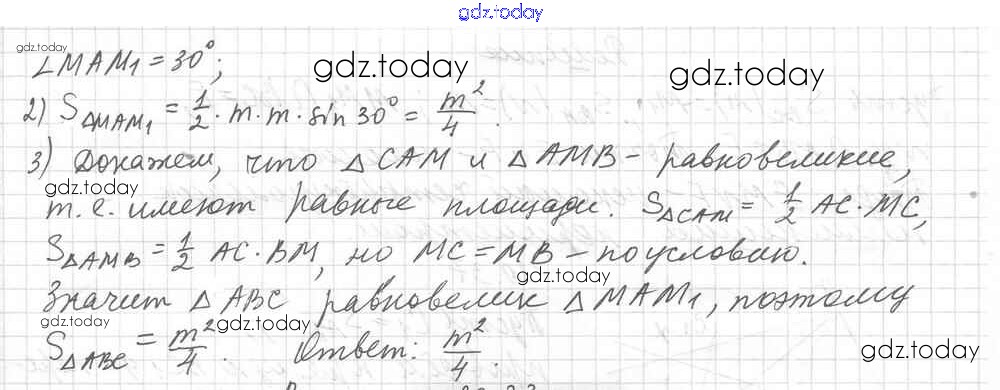 gdz.today
gdz.today
∠MAM₁ = 30°;
gdz.today
gdz.today
2) S△MAM₁ = 1/2 · m · m · sin 30° = m²/4.
3) Докажем, что △CAM и △AMB – равновеликие,
gdz.today
т.е. имеют равные площади. S△CAM = 1/2 AC · MC,
S△AMB = 1/2 AC · BM, но MC = MB – по условию.
gdz.today
Значит △ABC равновелик △MAM₁, поэтому
gdz.today
gdz.today
S△ABC = m²/4. Ответ: m²/4.
gdz.today